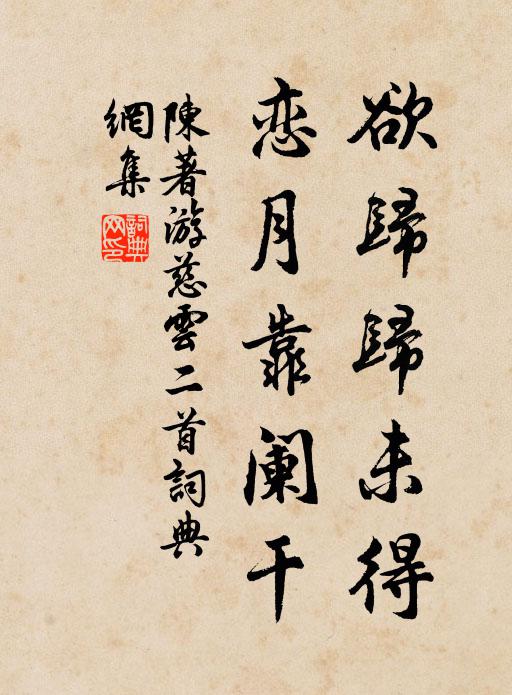 欲歸歸未得
恋月靠阑干
陳著游慈雲二首詞典
網集
詞典
网印